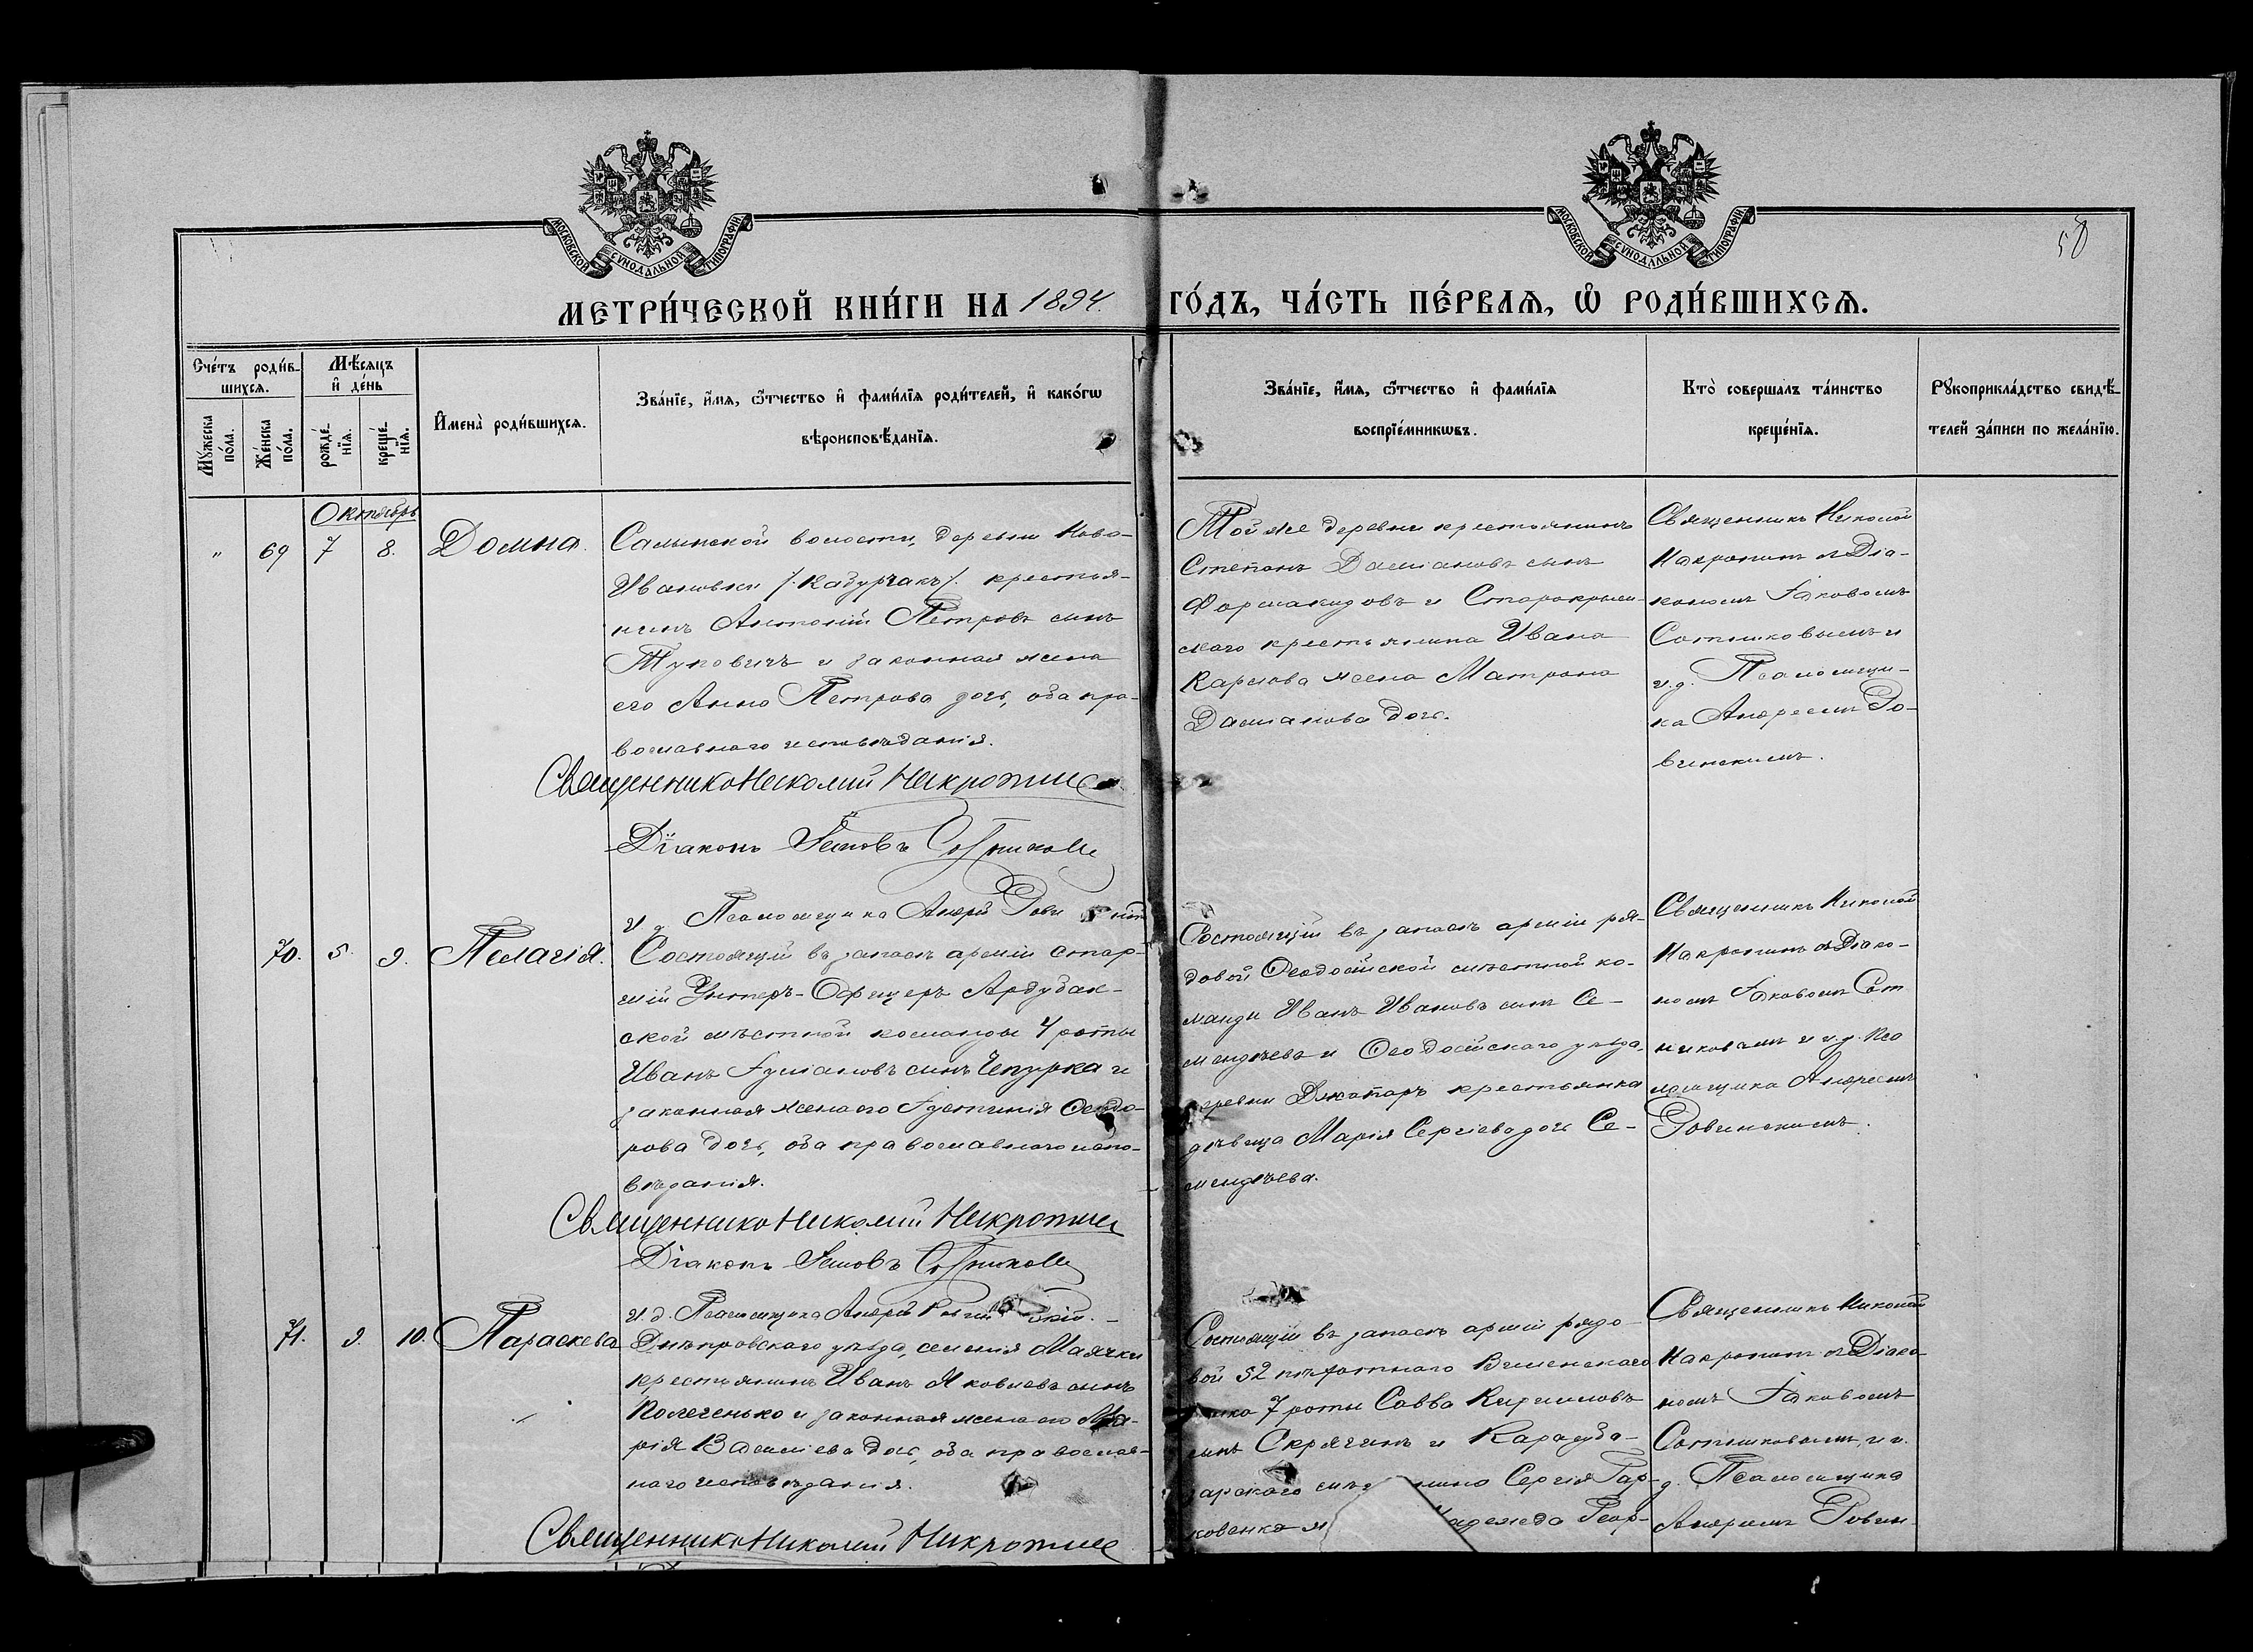 МОСКОВСКОЙ СУНОДАЛЬНОЙ ТИПОГРАФІИ
МОСКОВСКОЙ СУНОДАЛЬНОЙ ТИПОГРАФІИ
58
МЕТРИ́ЧЕСКОЙ КНИ́ГИ НА 1894. ГО́ДЪ, ЧА́СТЬ ПЕ́РВАЯ, Ѡ РОДИ́ВШИХСЯ.
Сче́тъ роди́в-
шихся.
Мѣ́сяцъ
и де́нь
Му́жеска по́ла.
Же́нска по́ла.
рожде́-нїя.
креще́-нїя.
Имена̀ роди́вшихся.
Зва́нїе, и́мя, ѻ́тчество и фами́лїя роди́телей, и како́гѡ
вѣроисповѣ́данїя.
Зва́нїе, и́мя, ѻ́тчество и фами́лїя
воспрїе́мникѡвъ.
Кто̀ совершалъ та́инство
креще́нїя.
Рꙋкоприкла́дство свидѣ́-
телей за́писи по жела́нїю.
Октябрь
" 69 7 8. Домна.
Салынской волости, деревни Ново-
Ивановки /Кадурчакъ/. крестья-
нинъ Антоній Петровъ сынъ
Туповичъ и законная жена
его Анна Петрова дочь, оба пра-
вославнаго исповѣданія.
Священникъ Николай
Діаконъ Іаковъ Сотниковъ
и. д. Псаломщика Андрей
Той же деревни крестьянинъ
Степанъ Даміановъ сынъ
Фармакидовъ и Старокрым-
скаго крестьянина Ивана
Карпова жена Матрона
Даміанова дочь.
Священникъ Николай
съ Діа-
кономъ Іаковомъ
Сотниковымъ и
и. д. Псаломщи-
ка Андреемъ Ро-
винскимъ.
70. 5. 9. Пелагія.
Состоящій въ запасѣ арміи стар-
шій Унтеръ-Офицеръ
ской мѣстной команды 4 роты
Иванъ сынъ Чепурка и
законная жена его Іустинія Ѳеодо-
рова дочь, оба православнаго испо-
вѣданія.
Священникъ Николай
Діаконъ Іаковъ Сотниковъ
и. д. Псаломщика Андрей
Состоящій въ запасѣ арміи ря-
довой Ѳеодосійской мѣстной ко-
манды Иванъ Ивановъ сынъ Се-
мендяевъ и Ѳеодосійскаго уѣзда,
деревни крестьянка
дѣвица Марія Сергіева дочь Се-
мендяева.
Священникъ Николай
съ Діако-
номъ Іаковомъ Сот
никовымъ и и. д. Пса
ломщика Андреемъ
Ровинскимъ.
71. 9. 10. Параскева
Днѣпровскаго уѣзда, селенія Маячки
крестьянинъ Иванъ Яковлевъ сынъ
Колеченько и законная жена его Ма-
рія Василіева дочь, оба православ-
наго исповѣданія.
Священникъ Николай
Состоящій въ запасѣ арміи рядо-
вой 52 пѣхотнаго Виленскаго
полка 7 роты Савва Кирилловъ
сынъ Скрягинъ и
Сергія Гар-
ковенка Надежда Геор-
Священникъ Николай
съ Діако-
номъ Іаковомъ
Сотниковымъ, и и.
д. Псаломщика
Андреемъ Ровин-